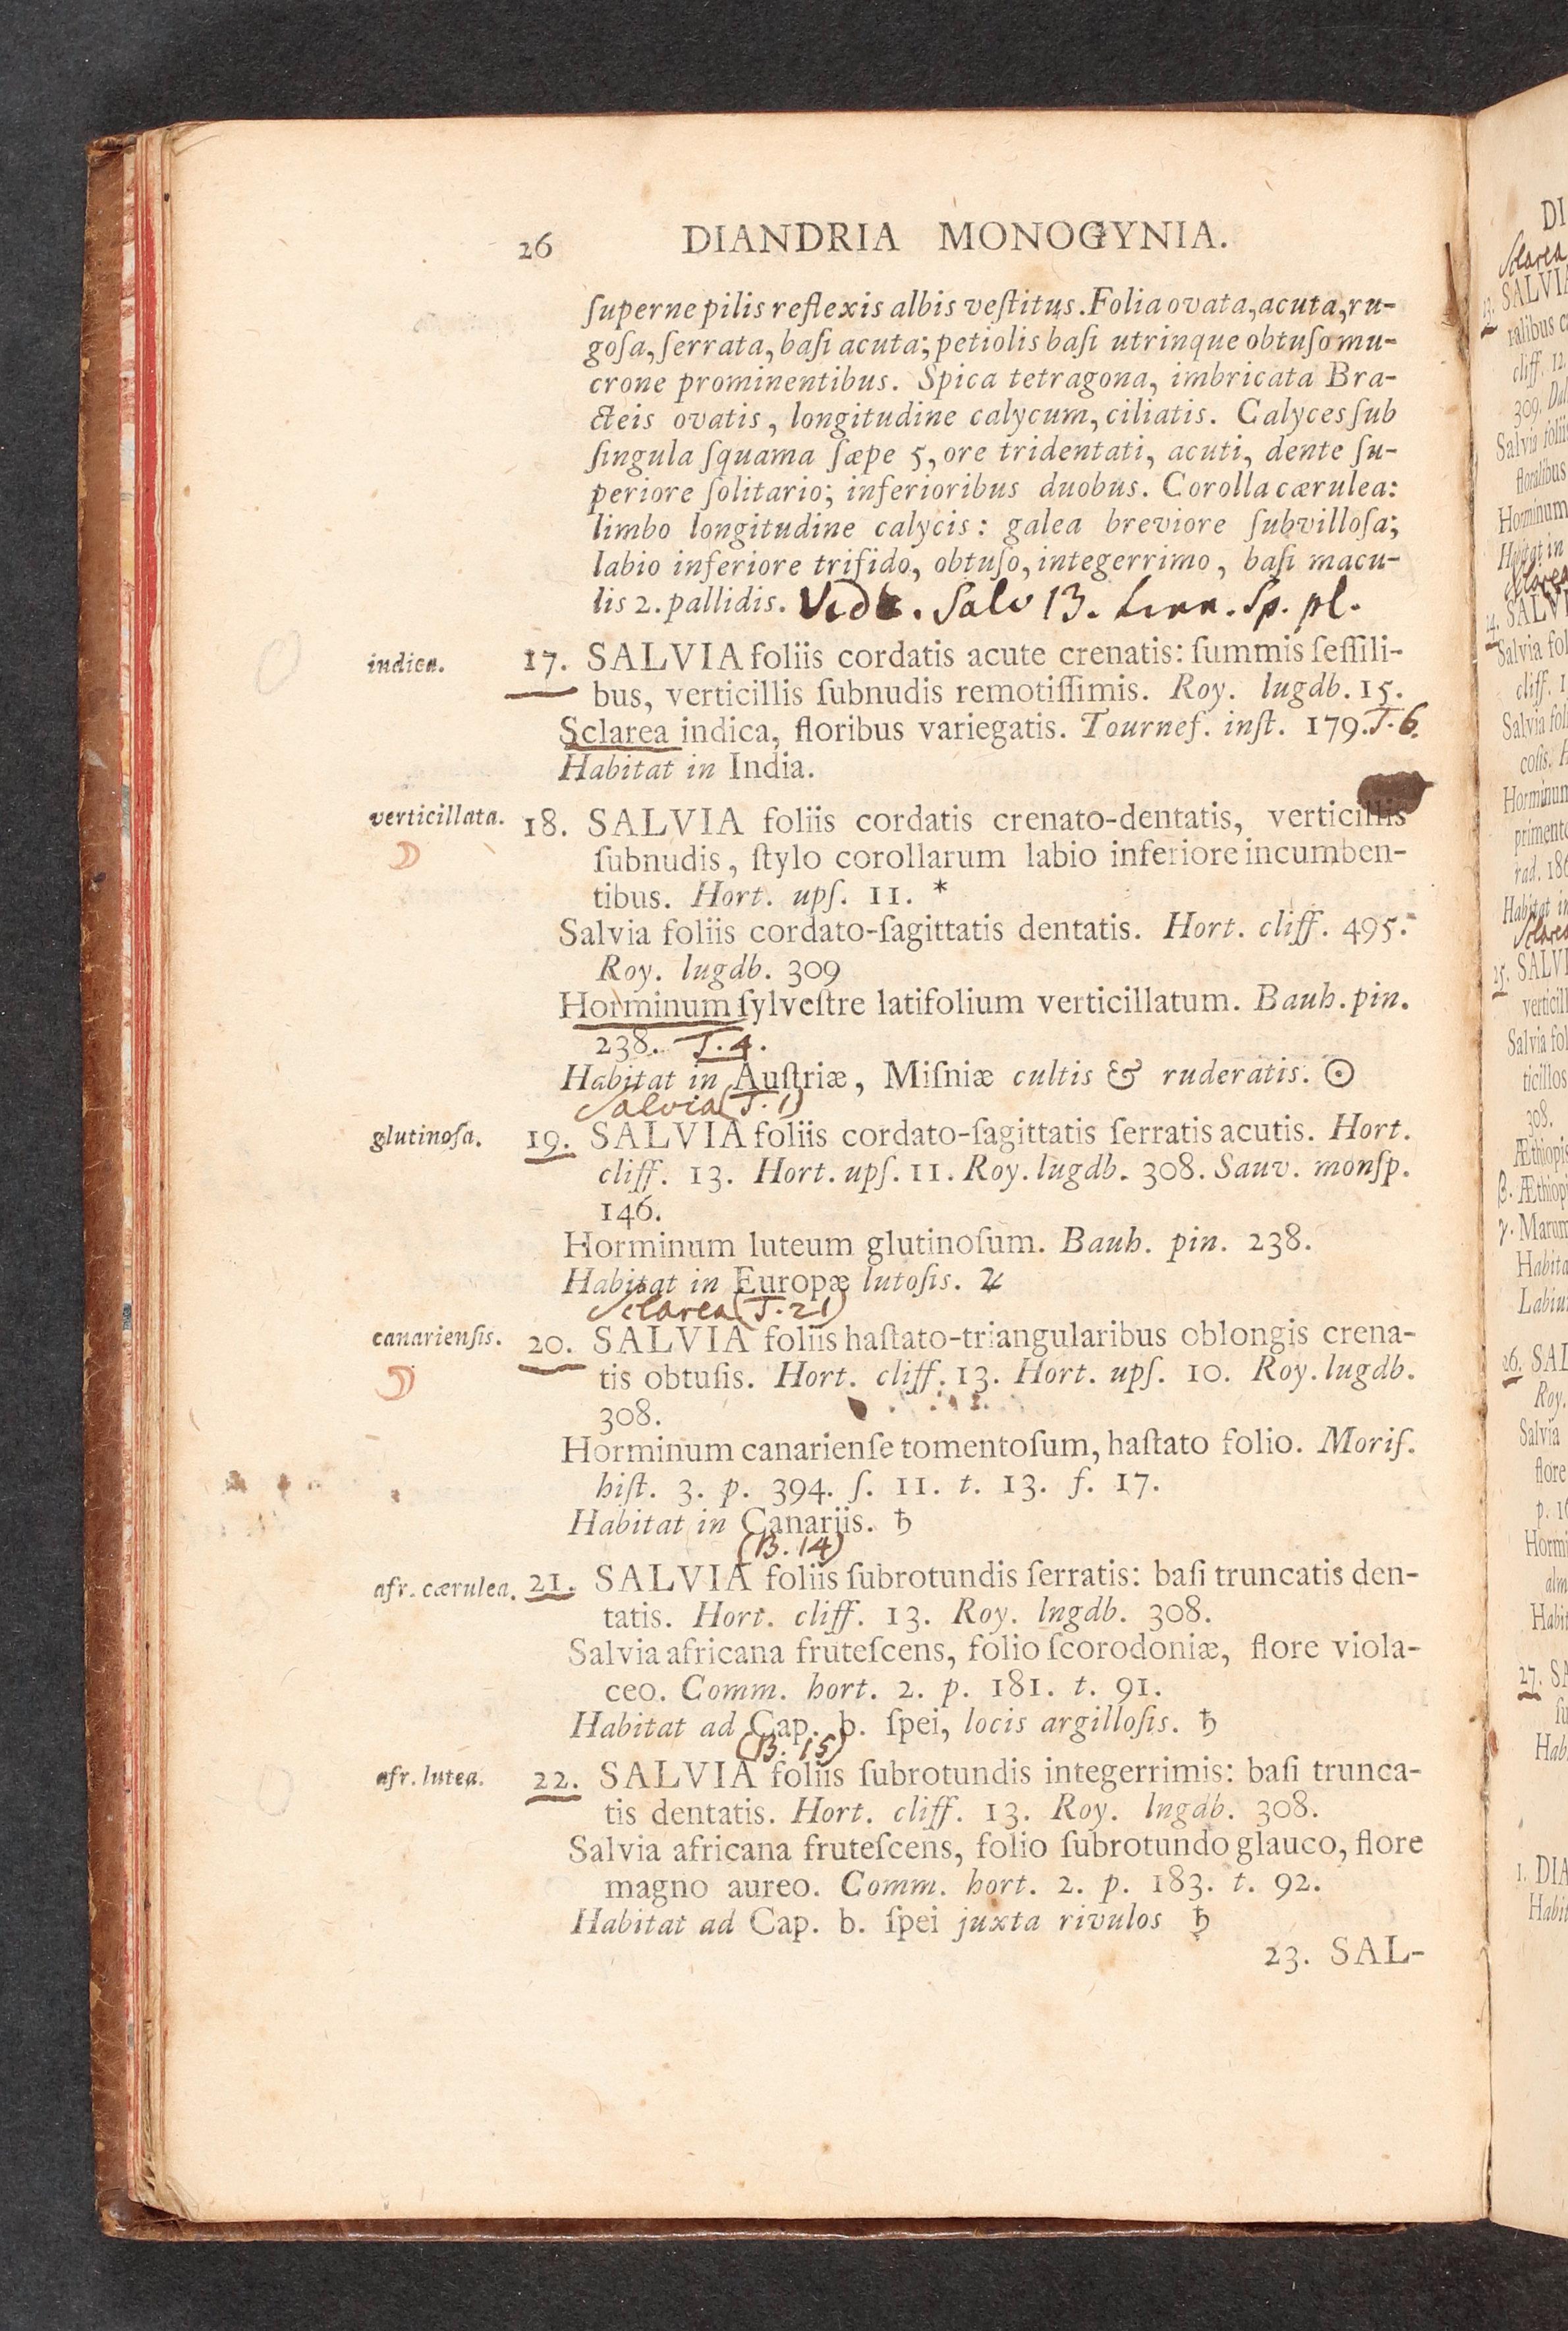 26 DIANDRIA MONOGYNIA.
ſuperne pilis reflexis albis veſtitus. Folia ovata, acuta, ru-
goſa, ſerrata, baſi acuta; petiolis baſi utrinque obtuſo mu-
crone prominentibus. Spica tetragona, imbricata Bra-
cteis ovatis, longitudine calycum, ciliatis. Calyces ſub
ſingula ſquama ſæpe 5, ore tridentati, acuti, dente ſu-
periore ſolitario; inferioribus duobus. Corolla cærulea:
limbo longitudine calycis: galea breviore ſubvilloſa;
labio inferiore trifido, obtuſo, integerrimo, baſi macu-
lis 2. pallidis. Salv 13. Linn. Sp. pl.
indica. 17. SALVIA foliis cordatis acute crenatis: ſummis ſeſſili-
bus, verticillis ſubnudis remotiſſimis. Roy. lugdb. 15.
Sclarea indica, floribus variegatis. Tournef. inſt. 179. T. 6.
Habitat in India.
verticillata. 18. SALVIA foliis cordatis crenato-dentatis, verticillis
ſubnudis, ſtylo corollarum labio inferiore incumben-
tibus. Hort. upſ. 11. *
Salvia foliis cordato-ſagittatis dentatis. Hort. cliff. 495.
Roy. lugdb. 309
Horminum ſylveſtre latifolium verticillatum. Bauh. pin.
238. T. 4.
Habitat in Auſtriæ, Miſniæ cultis & ruderatis. ☉
Salvia (T. 1)
glutinoſa. 19. SALVIA foliis cordato-ſagittatis ſerratis acutis. Hort.
cliff. 13. Hort. upſ. 11. Roy. lugdb. 308. Sauv. monſp.
146.
Horminum luteum glutinoſum. Bauh. pin. 238.
Habitat in Europæ lutoſis. ♃
Sclarea (T. 21)
canarienſis. 20. SALVIA foliis haſtato-triangularibus oblongis crena-
tis obtuſis. Hort. cliff. 13. Hort. upſ. 10. Roy. lugdb.
308.
Horminum canarienſe tomentoſum, haſtato folio. Moriſ.
hiſt. 3. p. 394. ſ. 11. t. 13. f. 17.
Habitat in Canariis. ♄
(B. 14)
afr. cærulea. 21. SALVIA foliis ſubrotundis ſerratis: baſi truncatis den-
tatis. Hort. cliff. 13. Roy. lngdb. 308.
Salvia africana fruteſcens, folio ſcorodoniæ, flore viola-
ceo. Comm. hort. 2. p. 181. t. 91.
Habitat ad Cap. b. ſpei, locis argilloſis. ♄
(B. 15)
afr. lutea. 22. SALVIA foliis ſubrotundis integerrimis: baſi trunca-
tis dentatis. Hort. cliff. 13. Roy. lngdb. 308.
Salvia africana fruteſcens, folio ſubrotundo glauco, flore
magno aureo. Comm. hort. 2. p. 183. t. 92.
Habitat ad Cap. b. ſpei juxta rivulos ♄
23. SAL-